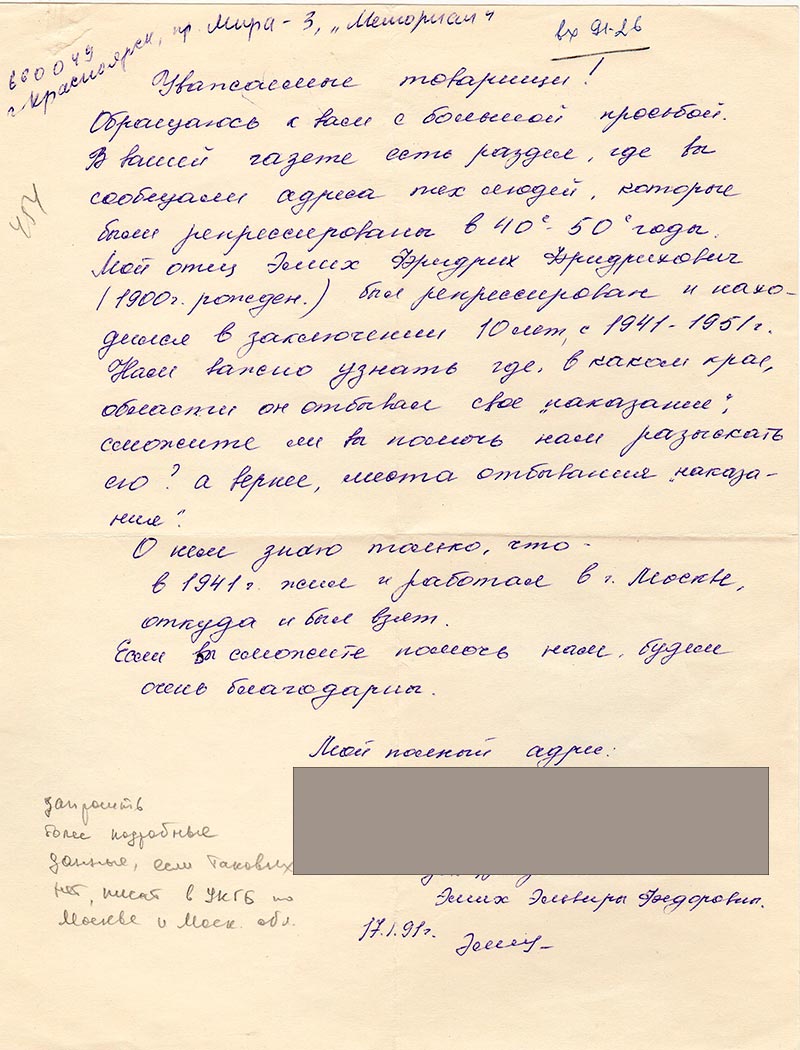 660049
г. Красноярск, пр. Мира - 3, „Мемориал"
вх 91-26
454
Уважаемые товарищи!
Обращаюсь к вам с большой просьбой.
В вашей газете есть раздел, где вы
сообщали адреса тех людей, которые
были репрессированы в 40е - 50е годы.
Мой отец Эмих Фридрих Фридрихович
(1900г. рожден.) был репрессирован и нахо-
дился в заключении 10 лет, с 1941-1951г.
Нам важно узнать где, в каком крае,
области он отбывал свое „наказание",
сможите ли вы помочь нам разыскать
его? а вернее, места отбывания „наказа-
ния".
О нем знаю только, что -
в 1941г. жил и работал в г. Москве,
откуда и был взят.
Если вы сможите помочь нам, будем
очень благодарны.
Мой полный адрес:
Эмих Эльвиры Федоровны.
17.I.91г.
запросить
более подробные
данные, если таковых
нет, писат в УКГБ по
Москве и Моск. обл.